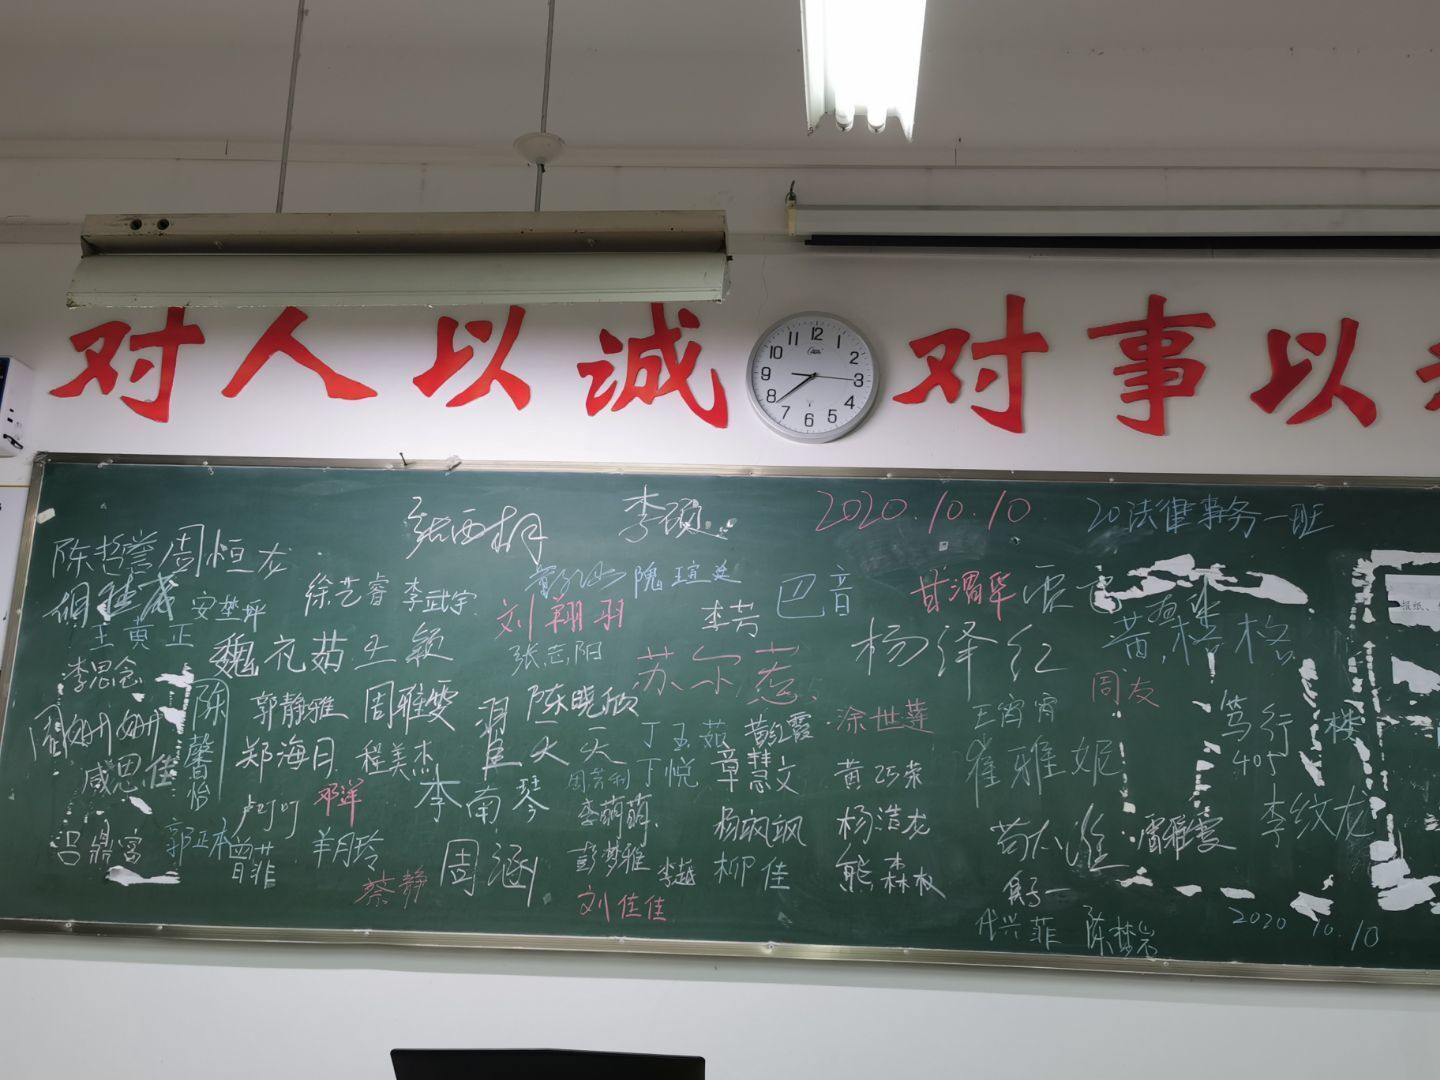 对人以诚 对事以
12
1
2
3
4
5
6
7
8
9
10
11
张西桐 李硕 2020.10.10 20法律事务一班
陈哲誉 周恒龙
徐艺睿 李武宇 隗瑄廷 巴音 甘渭华
安楚坪
王黄正
刘翔羽 李芳 杨泽红 黄格格
李思念 魏花茹 王颖 张志阳 苏尔惹 周友
周姗姗 陈馨怡 郭静雅 周雅雯 陈晓欣 涂世莲 王宵宵 笃行楼
咸思佳 郑海月 程美杰 翟天天 丁玉茹 黄红霞 崔雅妮 405
周芳利 丁悦 章慧文 黄巧荣
邓洋 李南琴 李萌萌 杨飒飒 杨浩龙 李纹龙
吕鼎富 郭亚林 曾菲 羊月玲 周涵 彭梦雅 李越 柳佳 熊森权 雷雅雯
蔡静 刘佳佳
代兴菲 陈梦岩 2020.10.10
报纸、